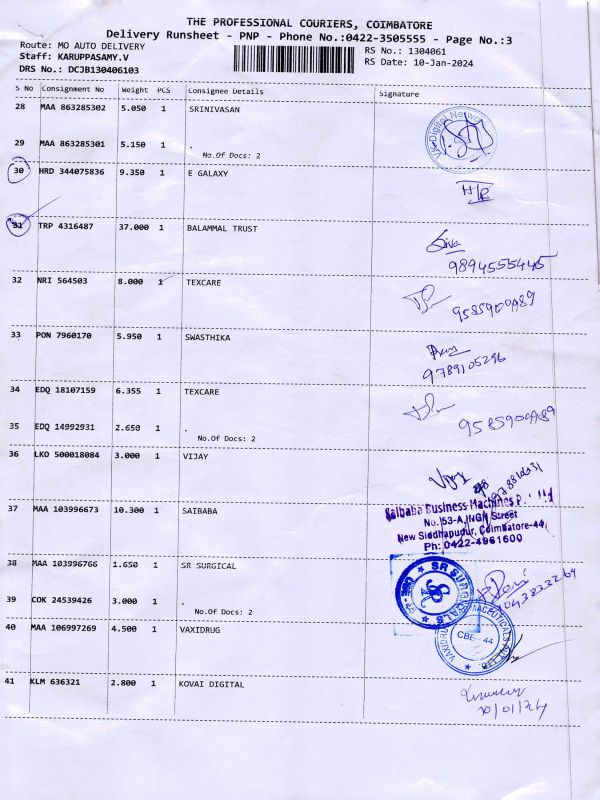 THE PROFESSIONAL COURIERS, COIMBATORE
Delivery Runsheet - PNP - Phone No.:0422-3505555 - Page No.:3
Route: MO AUTO DELIVERY
RS No.: 1304061
Staff: KARUPPASAMY.V
RS Date: 10-Jan-2024
DRS No.: DCJB130406103
S No Consignment No Weight PCS Consignee Details Signature
28 MAA 863285302 5.050 1 SRINIVASAN
Digital
29 MAA 863285301 5.150 1 .
No.Of Docs: 2
30 HRD 344075836 9.350 1 E GALAXY
31 TRP 4316487 37.000 1 BALAMMAL TRUST
Siva
9894555445
32 NRI 564503 8.000 1 TEXCARE
33 PON 7960170 5.950 1 SWASTHIKA
9789105296
34 EDQ 18107159 6.355 1 TEXCARE
35 EDQ 14992931 2.650 1 .
No.Of Docs: 2
36 LKO 500018084 3.000 1 VIJAY
Vijay
37 MAA 103996673 10.300 1 SAIBABA
Saibaba Business Machines
No. 53-A, Street
New Siddhapudur, Coimbatore-44
Ph: 0422-4961600
38 MAA 103996766 1.650 1 SR SURGICAL
SR SURGICALS
39 COK 24539426 3.000 1 .
No.Of Docs: 2
40 MAA 106997269 4.500 1 VAXIDRUG
CBE - 44
41 KLM 636321 2.800 1 KOVAI DIGITAL
10/01/24